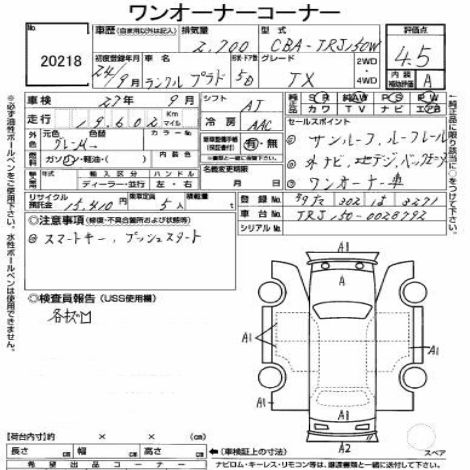 ワンオーナーコーナー
出品番号
20218
車歴 (自家用以外は記入)
排気量
型式
評価点
2,700
CBA-TRJ150W
4.5
初度登録年月
車名
ドア・形状
グレード
2WD
4WD
24/9月
ランクル プラド
5D
TX
内装補助評価
A
車検
27年9月
シフト
AT
純正品
SR
AW
PS
PW
カワ
TV
ナビ
エアB
走行
19,602
Km
マイル
冷房
AAC
セールスポイント
外色
元色
色替
グレー
有・無
サンルーフ、ルーフレール
燃料
ガソリン・軽油・( )
外ナビ、地デジ、バックカメラ
ワンオーナー車
輸入区分
ハンドル
ディーラー・並行
左・右
名義変更期限
月 日
リサイクル預託金
15,410円
乗車定員
5人
積載量
t
登録
車台
TRJ150-0028792
シリアル№
注意事項 (修復・不具合箇所および状態等)
スマートキー、プッシュスタート
検査員報告 (USS使用欄)
各枚凹
A1
A
A1
A1
A1
A2
A2
スペア
(荷台内寸) × × (cm)
長さ
cm
幅
cm
高さ
cm
(車検証上の寸法)
希望出品コーナー
ナビロム・キーレス・リモコン等は、譲渡書類と一緒に提出して下さい。
※必ず油性ボールペンをご使用下さい。水性ボールペンは使用できません。